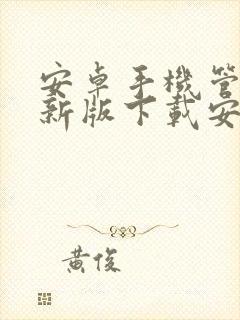 安卓手機管
新版下載安
黃俊